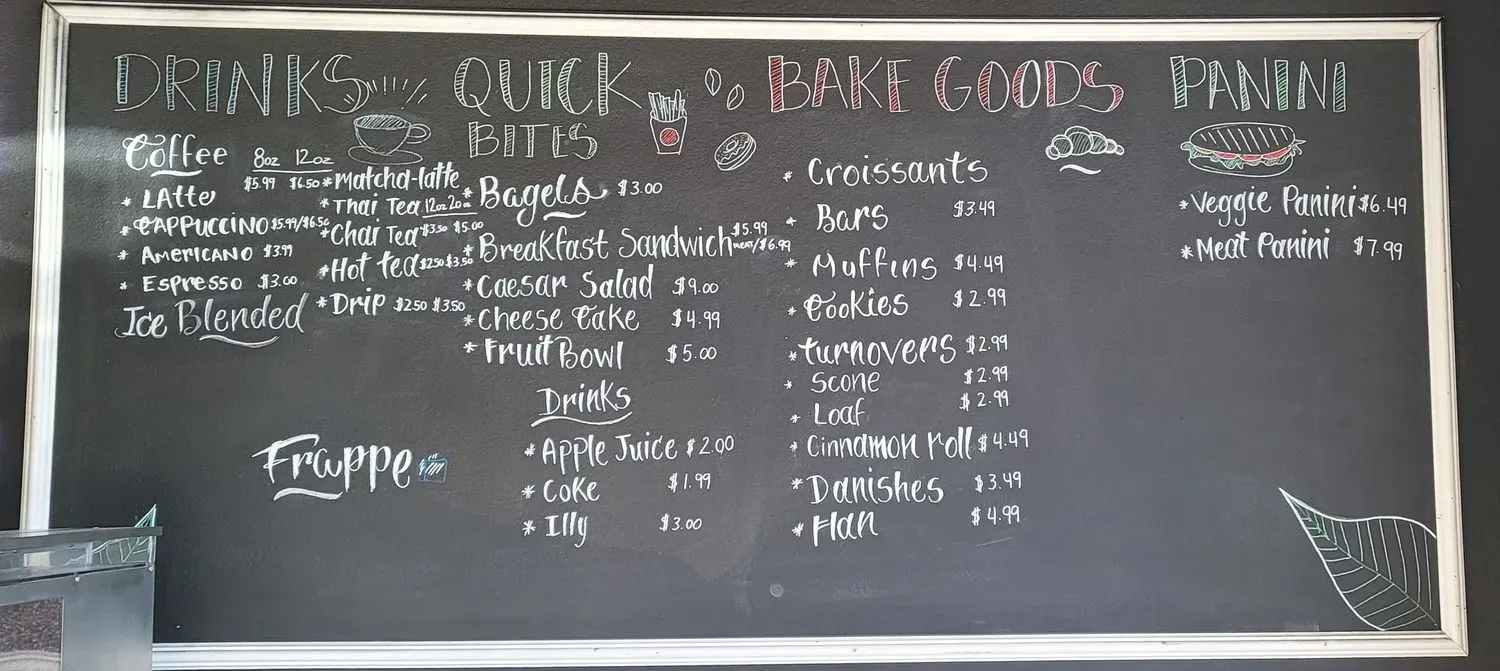 DRINKS
Coffee 8oz 12oz
* LAtte $5.99 $6.50
* CAPPUCCINO $5.99/$6.50
* AMERICANO $3.99
* Espresso $3.00
Ice Blended
* Matcha-latte
* Thai Tea 12oz 20oz
* Chai Tea $3.50 $5.00
* Hot tea $2.50 $3.50
* Drip $2.50 $3.50
Frappe
QUICK
BITES
* Bagels $3.00
* Breakfast Sandwich $5.99
meat/$6.99
* Caesar Salad $9.00
* Cheese Cake $4.99
* Fruit Bowl $5.00
Drinks
* Apple Juice $2.00
* Coke $1.99
* Illy $3.00
BAKE GOODS
* Croissants
* Bars $3.49
* Muffins $4.49
* Cookies $2.99
* turnovers $2.99
* Scone $2.99
* Loaf $2.99
* Cinnamon roll $4.49
* Danishes $3.49
* Flan $4.99
PANINI
* Veggie Panini $6.49
* Meat Panini $7.99